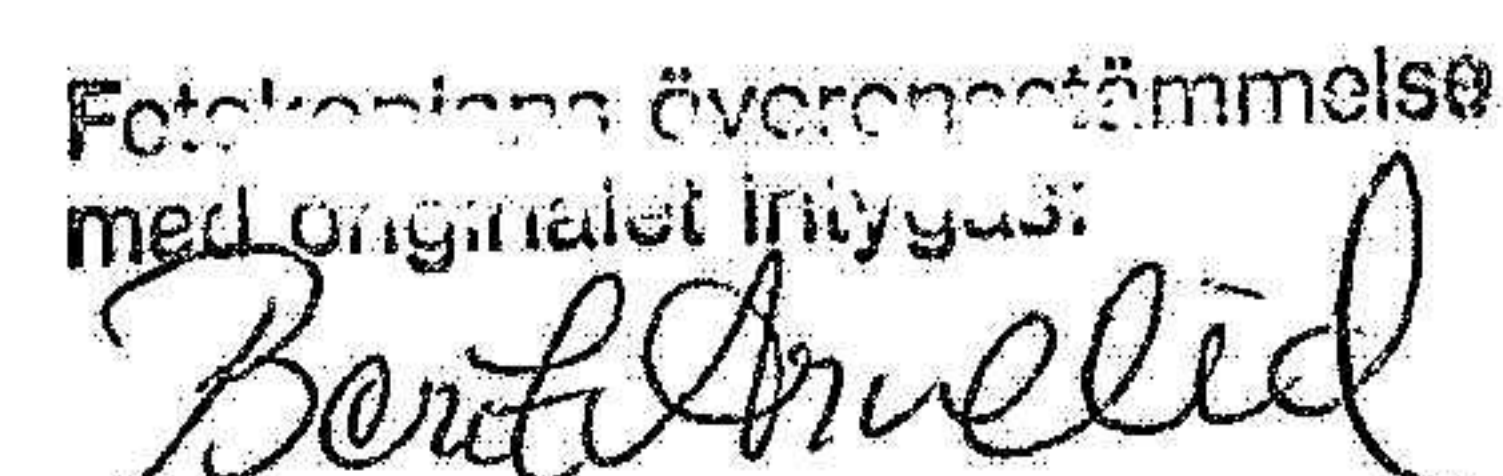 Fotokopians överensstämmelse
med originalet intygas:
Berit Arvelid